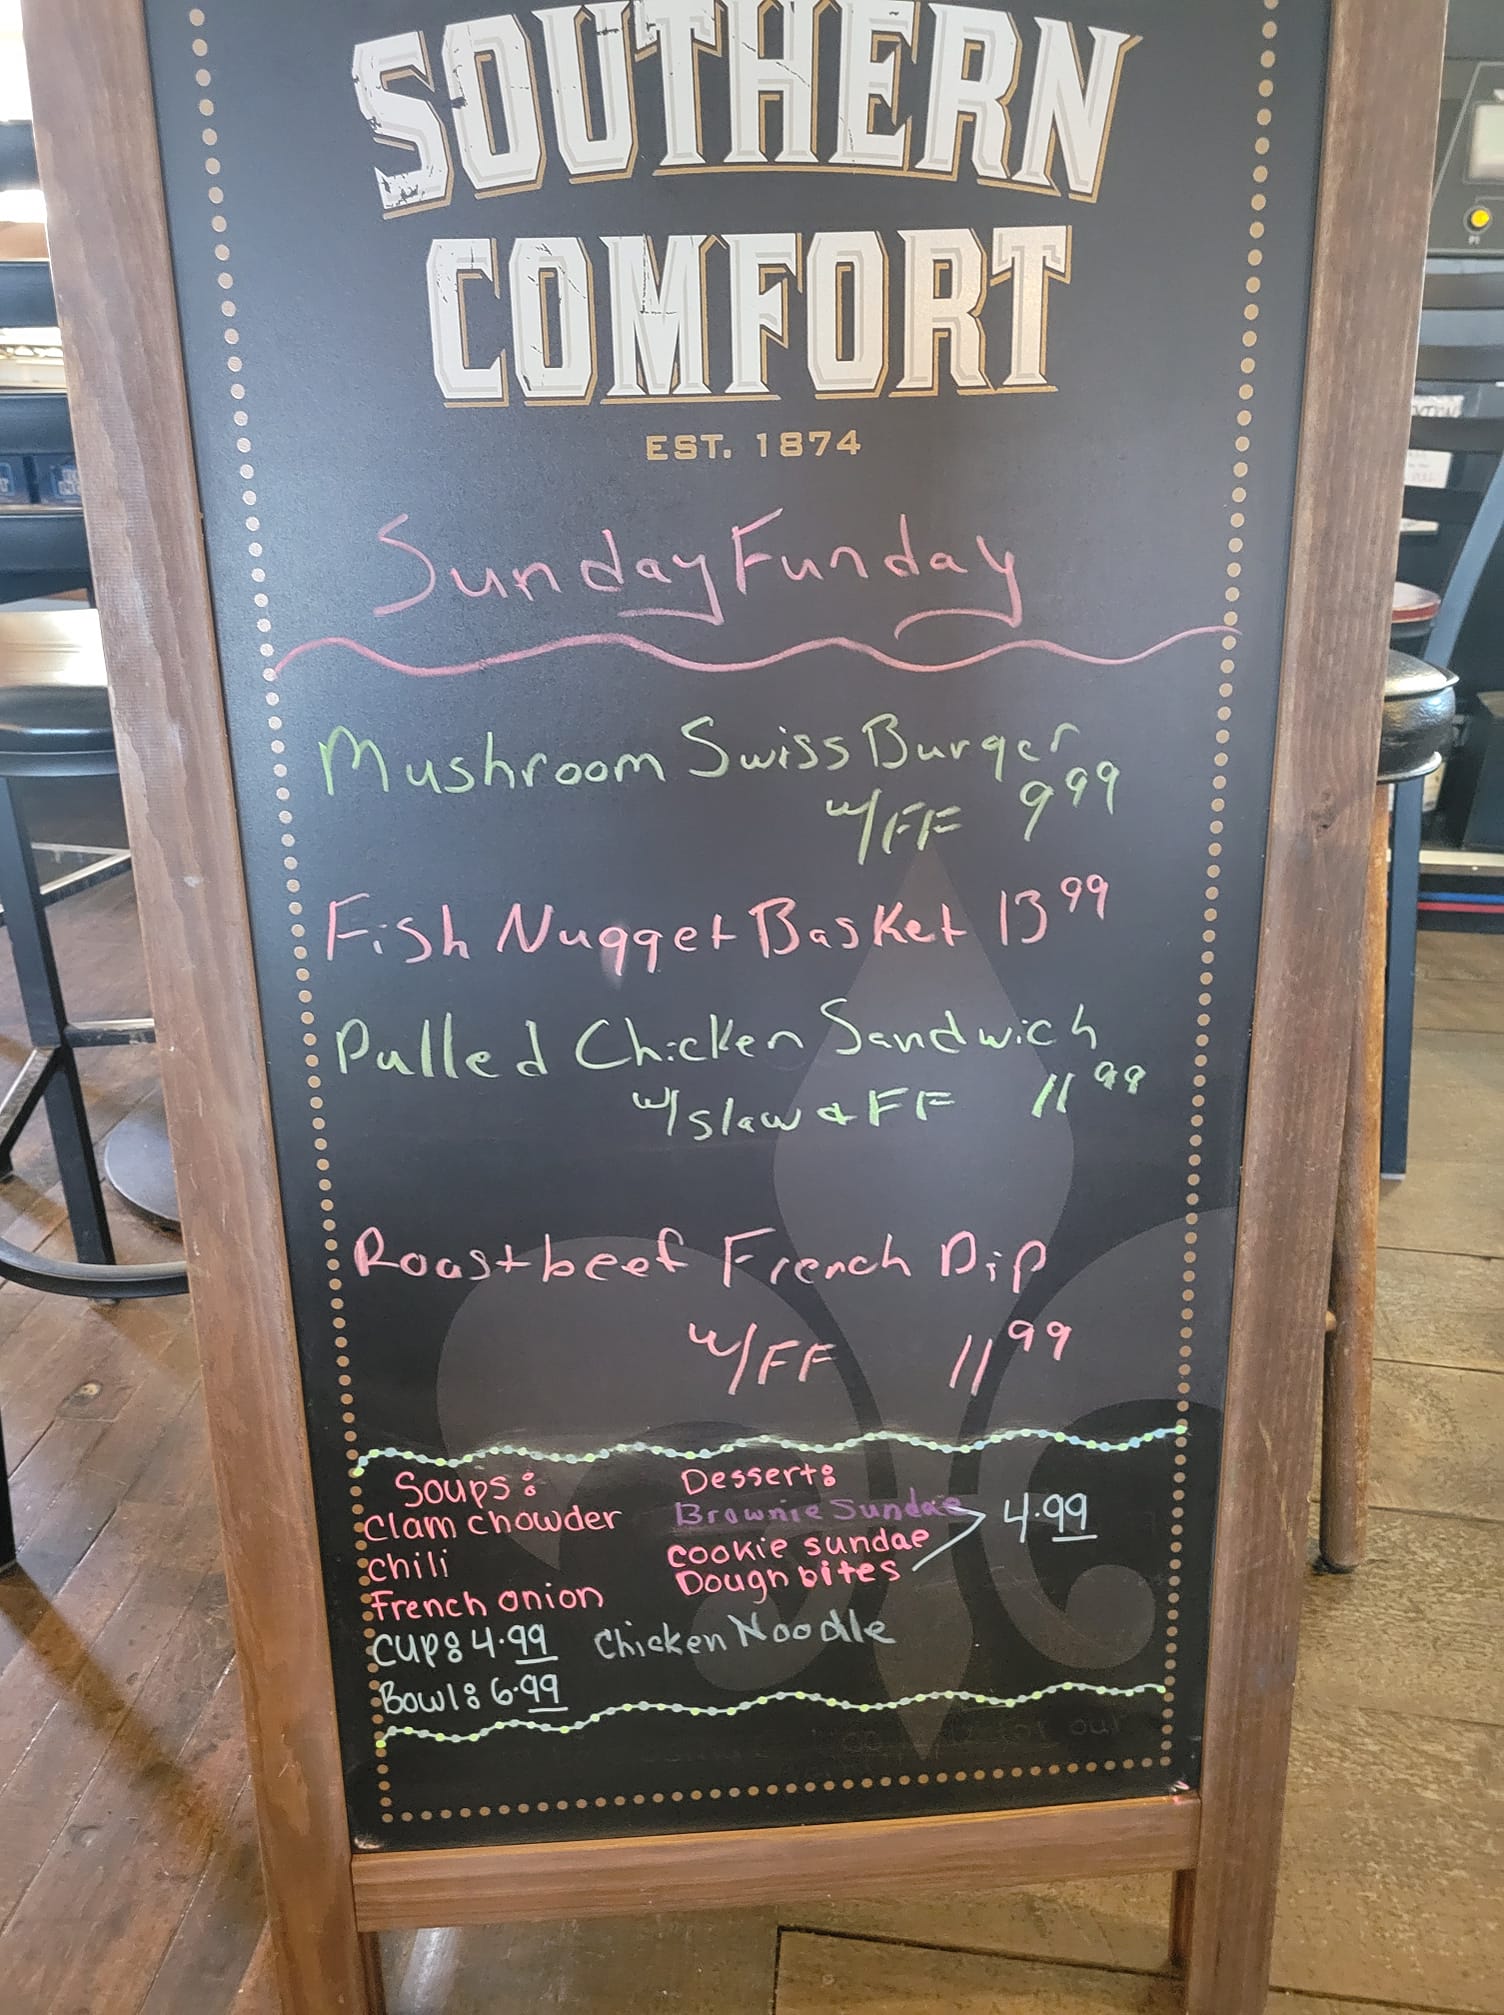 SOUTHERN
COMFORT
EST. 1874
Sunday Funday
Mushroom Swiss Burger
w/FF 9 99
Fish Nugget Basket 13 99
Pulled Chicken Sandwich
w/slaw & FF 11 99
Roastbeef French Dip
w/FF 11 99
Soups:
Clam chowder
chili
French onion
Cup: 4.99 Chicken Noodle
Bowl: 6.99
Dessert:
Brownie Sundae
cookie sundae 4.99
Dough bites
for our